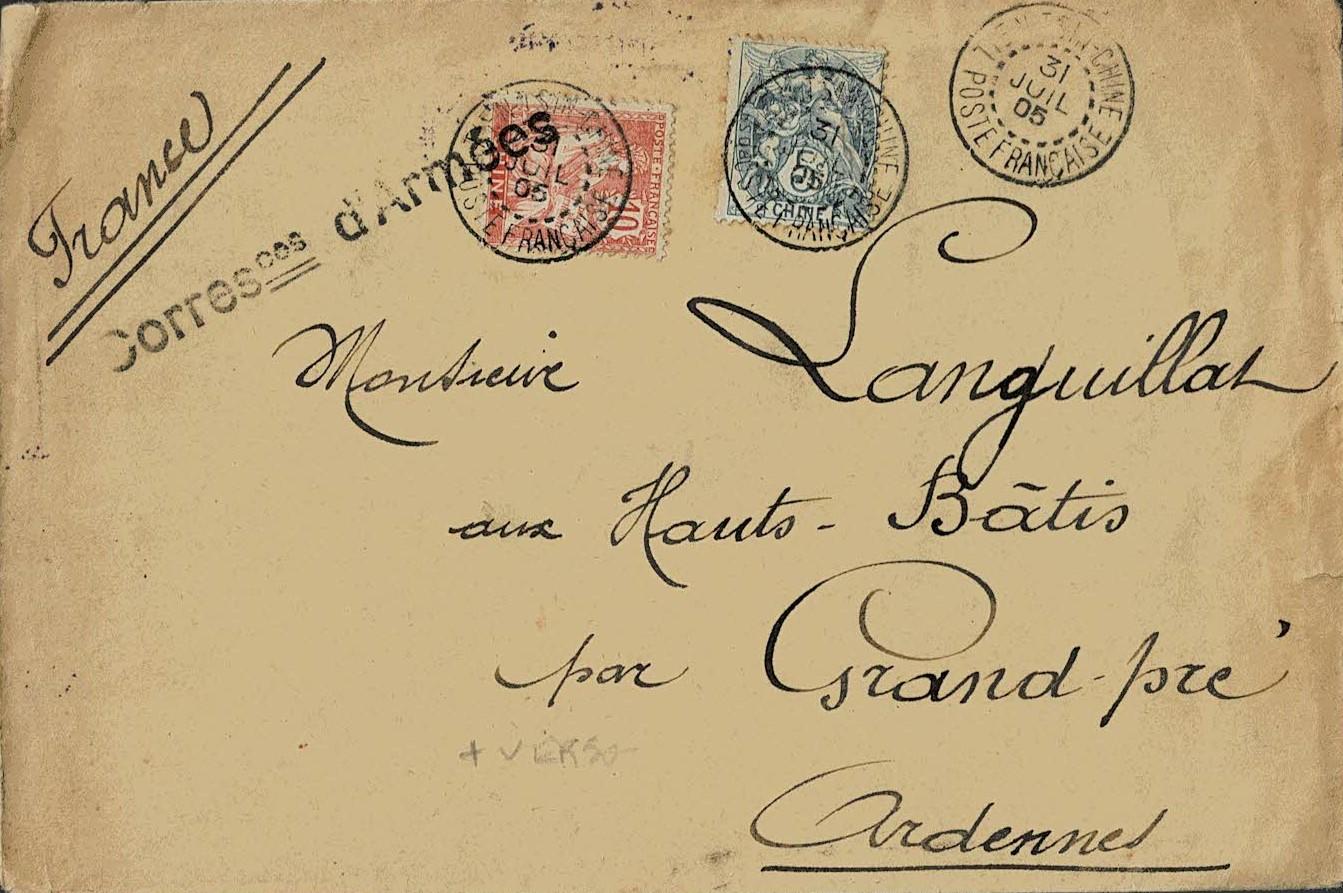 France
Corresces d'Armées
TIEN-TSIN-CHINE
31
JUIL
05
POSTE FRANÇAISE
POSTE FRANÇAISE
10
CHINE
31
JUIL
05
POSTE FRANÇAISE
5
CHINE
TIEN-TSIN-CHINE
31
JUIL
05
POSTE FRANÇAISE
Monsieur Languillat
aux Hauts-Bâtis
par Grand-pré
+ VERSO
Ardennes